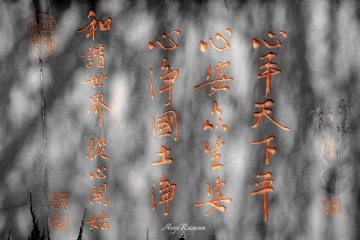 心平天下平
心安众生安
心淨國土淨
和諧世界 從心開始